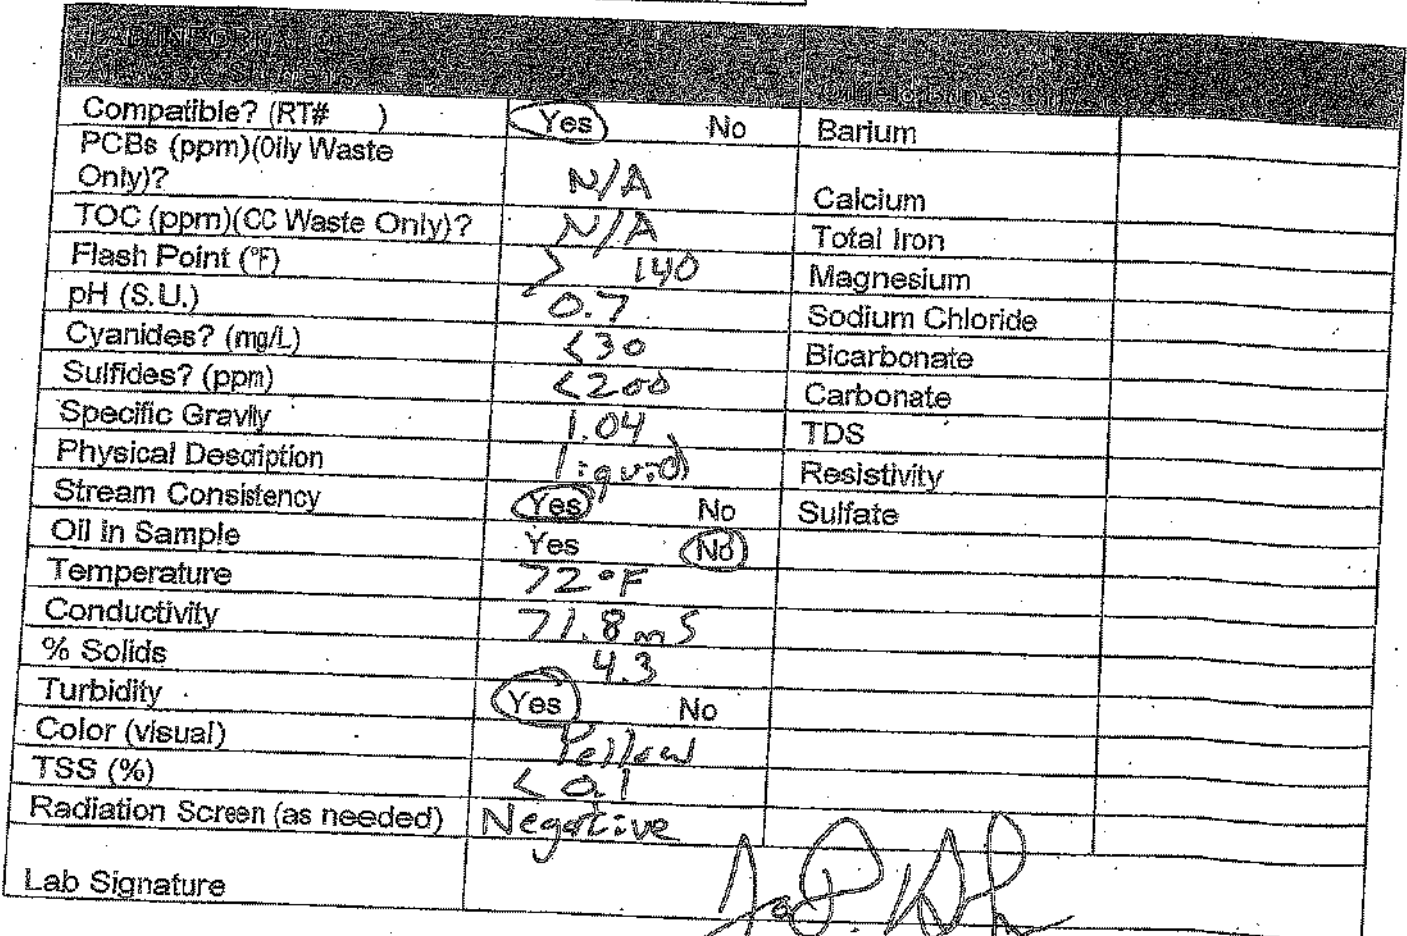 LAB INFORMATION
Compatible? (RT# ) Yes No Barium
PCBs (ppm)(Oily Waste
Only)? N/A Calcium
TOC (ppm)(CC Waste Only)? N/A Total Iron
Flash Point (°F) > 140 Magnesium
pH (S.U.) 0.7 Sodium Chloride
Cyanides? (mg/L) <30 Bicarbonate
Sulfides? (ppm) <200 Carbonate
Specific Gravity 1.04 TDS
Physical Description liquid Resistivity
Stream Consistency Yes No Sulfate
Oil in Sample Yes No
Temperature 72°F
Conductivity 71.8 mS
% Solids 4.3
Turbidity Yes No
Color (visual) Yellow
TSS (%) < 0.1
Radiation Screen (as needed) Negative
Lab Signature